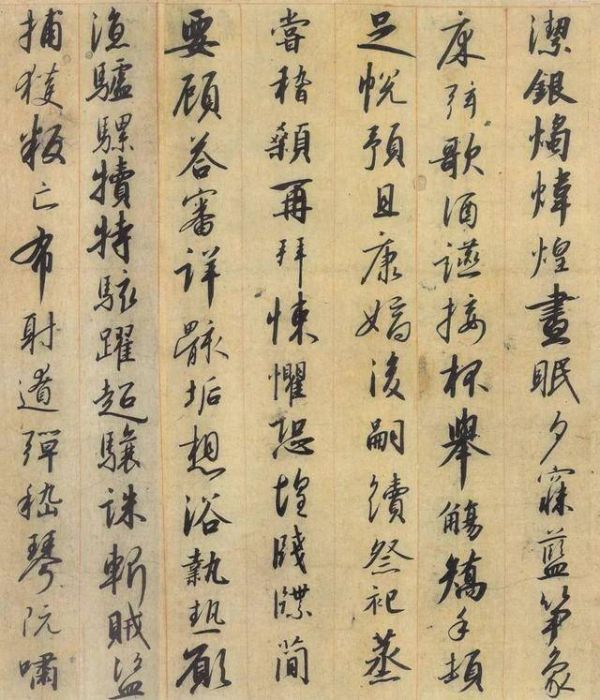 潔銀燭煒煌晝眠夕寐藍笋象
床弦歌酒讌接杯舉觴矯手頓
足悅預且康嫡後嗣續祭祀蒸
嘗稽顙再拜悚懼恐惶牋牒簡
要顧答審詳骸垢想浴執熱願
涼驢騾犢特駭躍超驤誅斬賊盜
捕獲叛亡布射遼彈嵇琴阮嘯